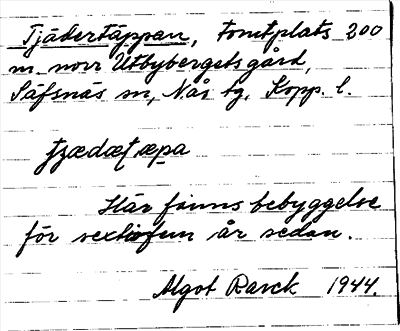 Tjädertäppan, Tomtplats 200
m norr Utbybergets gård,
Säfsnäs sn, Nås tg. Kopp. l.
tjædætæpa
Här finns bebyggelse
för sextiofem år sedan.
Algot Barck 1944.